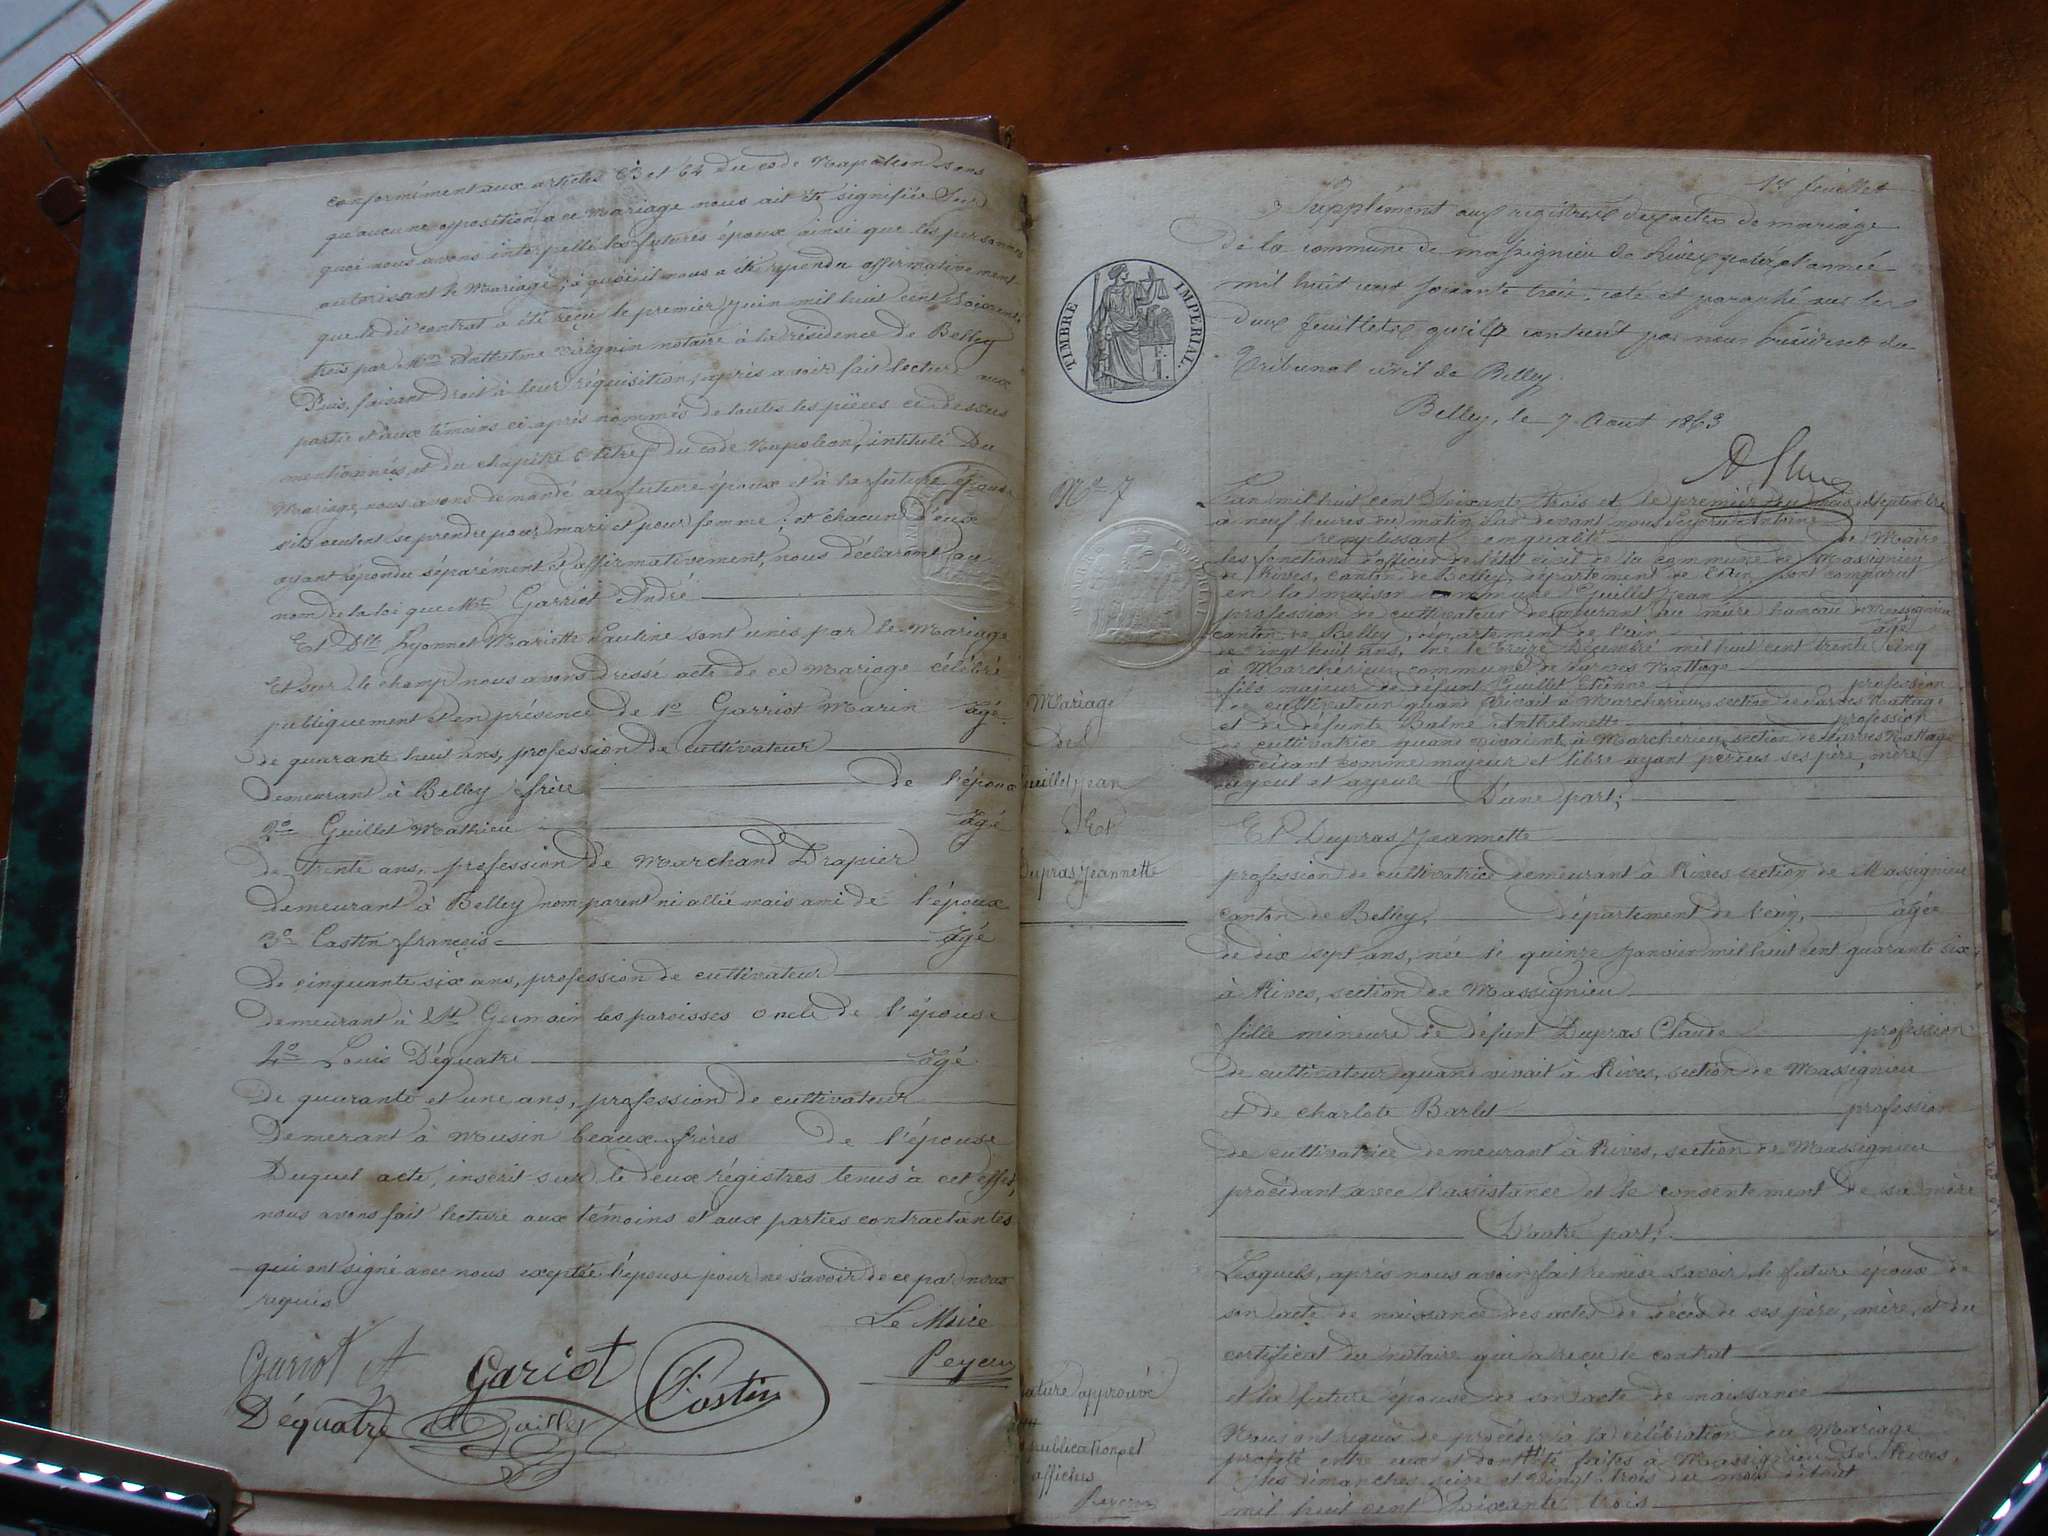 conformément aux articles 63 et 64 du code Napoléon sans
qu'aucune opposition a ce Mariage nous ait été signifiée Sur
quoi nous avons interpellé les futures époux ainsi que les personnes
autorissant le Mariage, à quoi il nous a été répondu affirmativement
que le dit contrat a été reçu le premier Juin mil huit cent Soixante
trois par Mre Anthelme notaire à la résidence de Belley
Puis, faisant droit à leur réquisition, après avoir fait lecture aux
partie et aux témoins ci après nommés de toutes les pièces ci dessus
mentionnées, et du chapitre 6 titre du code Napoléon, intitulé Du
Mariage, nous avons demandé au future époux et à la future épouse
s'ils veulent se prendre pour mari et pour femme ; et chacun d'eux
ayant répondu séparément et affirmativement, nous déclarons au
nom de la loi que Mr Garriot André
Et Dlle Lyonnet Mariette Pauline sont unis par le Mariage
Et sur le champ nous avons dressé acte de ce Mariage célébré
publiquement et en présence de 1o Garriot Marin âgé
de quarante huit ans, profession de cultivateur
demeurant à Belley frère de l'époux
2o Guillet Mathieu âgé
de trente ans, profession de Marchand Drapier
demeurant à Belley nom parent ni allié mais ami de l'époux
3o Castin françois âgé
de cinquante six ans, profession de cultivateur
demeurant à St Germain les paroisses oncle de l'épouse
4o Louis Déquatre âgé
de quarante et une ans, profession de cultivateur
demerant à Musin beaux frères de l'épouse
Duquel acte, inscrit sur le deux régistres tenus à cet effet,
nous avons fait lecture aux témoins et aux parties contractantes
qui ont signé avec nous exeptée l'épouse pour ne savoir de ce par nous
requis
Le Maire
Peyrun
Gariot A Gariot Castin
Déquatre Guillet
17 feuillet
Supplément aux registres des actes de mariage
de la commune de Massignieu de Rives pour l'année
mil huit cent soixante trois, coté et paraphé sur les
deux feuillets qu'il contient par nous Président du
Tribunal civil de Belley.
Belley, le 7 Aout 1863
TIMBRE IMPERIAL
No 7
L'an mil huit cent Soixante trois et le premier du mois Septembre
à neuf heures du matin Par devant nous Antoine
remplissant en qualité de Maire
les fonctions d'officier de l'état civil de la commune de Massignieu
de Rives, canton de Belley, département de l'Ain, sont comparu
en la maison commune Guillet Jean
profession de cultivateur demeurant au mure hameau de Massignieu
canton de Belley, département de l'ain âgé
de vingt huit ans, né le treize Décembre mil huit cent trente cinq
à Marchérieu commune de Parves Nattage
fils majeur de défunt Guillet Etienne profession
de cultivateur quand vivait à Marchérieu section de Parves Nattage
et de défunte Balme Anthelmette profession
de cultivatrice quand vivait à Marchérieu section de Parves Nattage
procédant comme majeur et libre ayant perdus ses père, mère
ayeul et ayeule D'une part;
Mariage
de
Guillet Jean
Et
Dupras Jeannette
Et Dupras Jeannette
profession de cultivatrice demeurant à Rives section de Massignieu
canton de Belley, département de l'ain, âgée
de dix sept ans, née le quinze Janvier mil huit cent quarante six
à Rives, section de Massignieu
fille mineure de défunt Dupras Claude profession
de cultivateur quand vivait à Rives, section de Massignieu
et de charlote Barlet profession
de cultivatrice demeurant à Rives, section de Massignieu
procédant avec l'assistance et le consentement de sa mère
D'autre part;
Lesquels, après nous avoir fait remise savoir, le future époux de
son acte de naissance des actes de décés de ses père, mère, et du
certificat du notaire qui a reçu le contrat
et la future épouse de son acte de naissance
Nous ont requis de procéder à la célébration du Mariage
projeté entre eux et dont été faites à Massignieu de Rives,
les dimanches seize et vingt trois du mois d'Aout
mil huit cent Soixante trois
rature approuvé
publication et
affiches
Peyrun